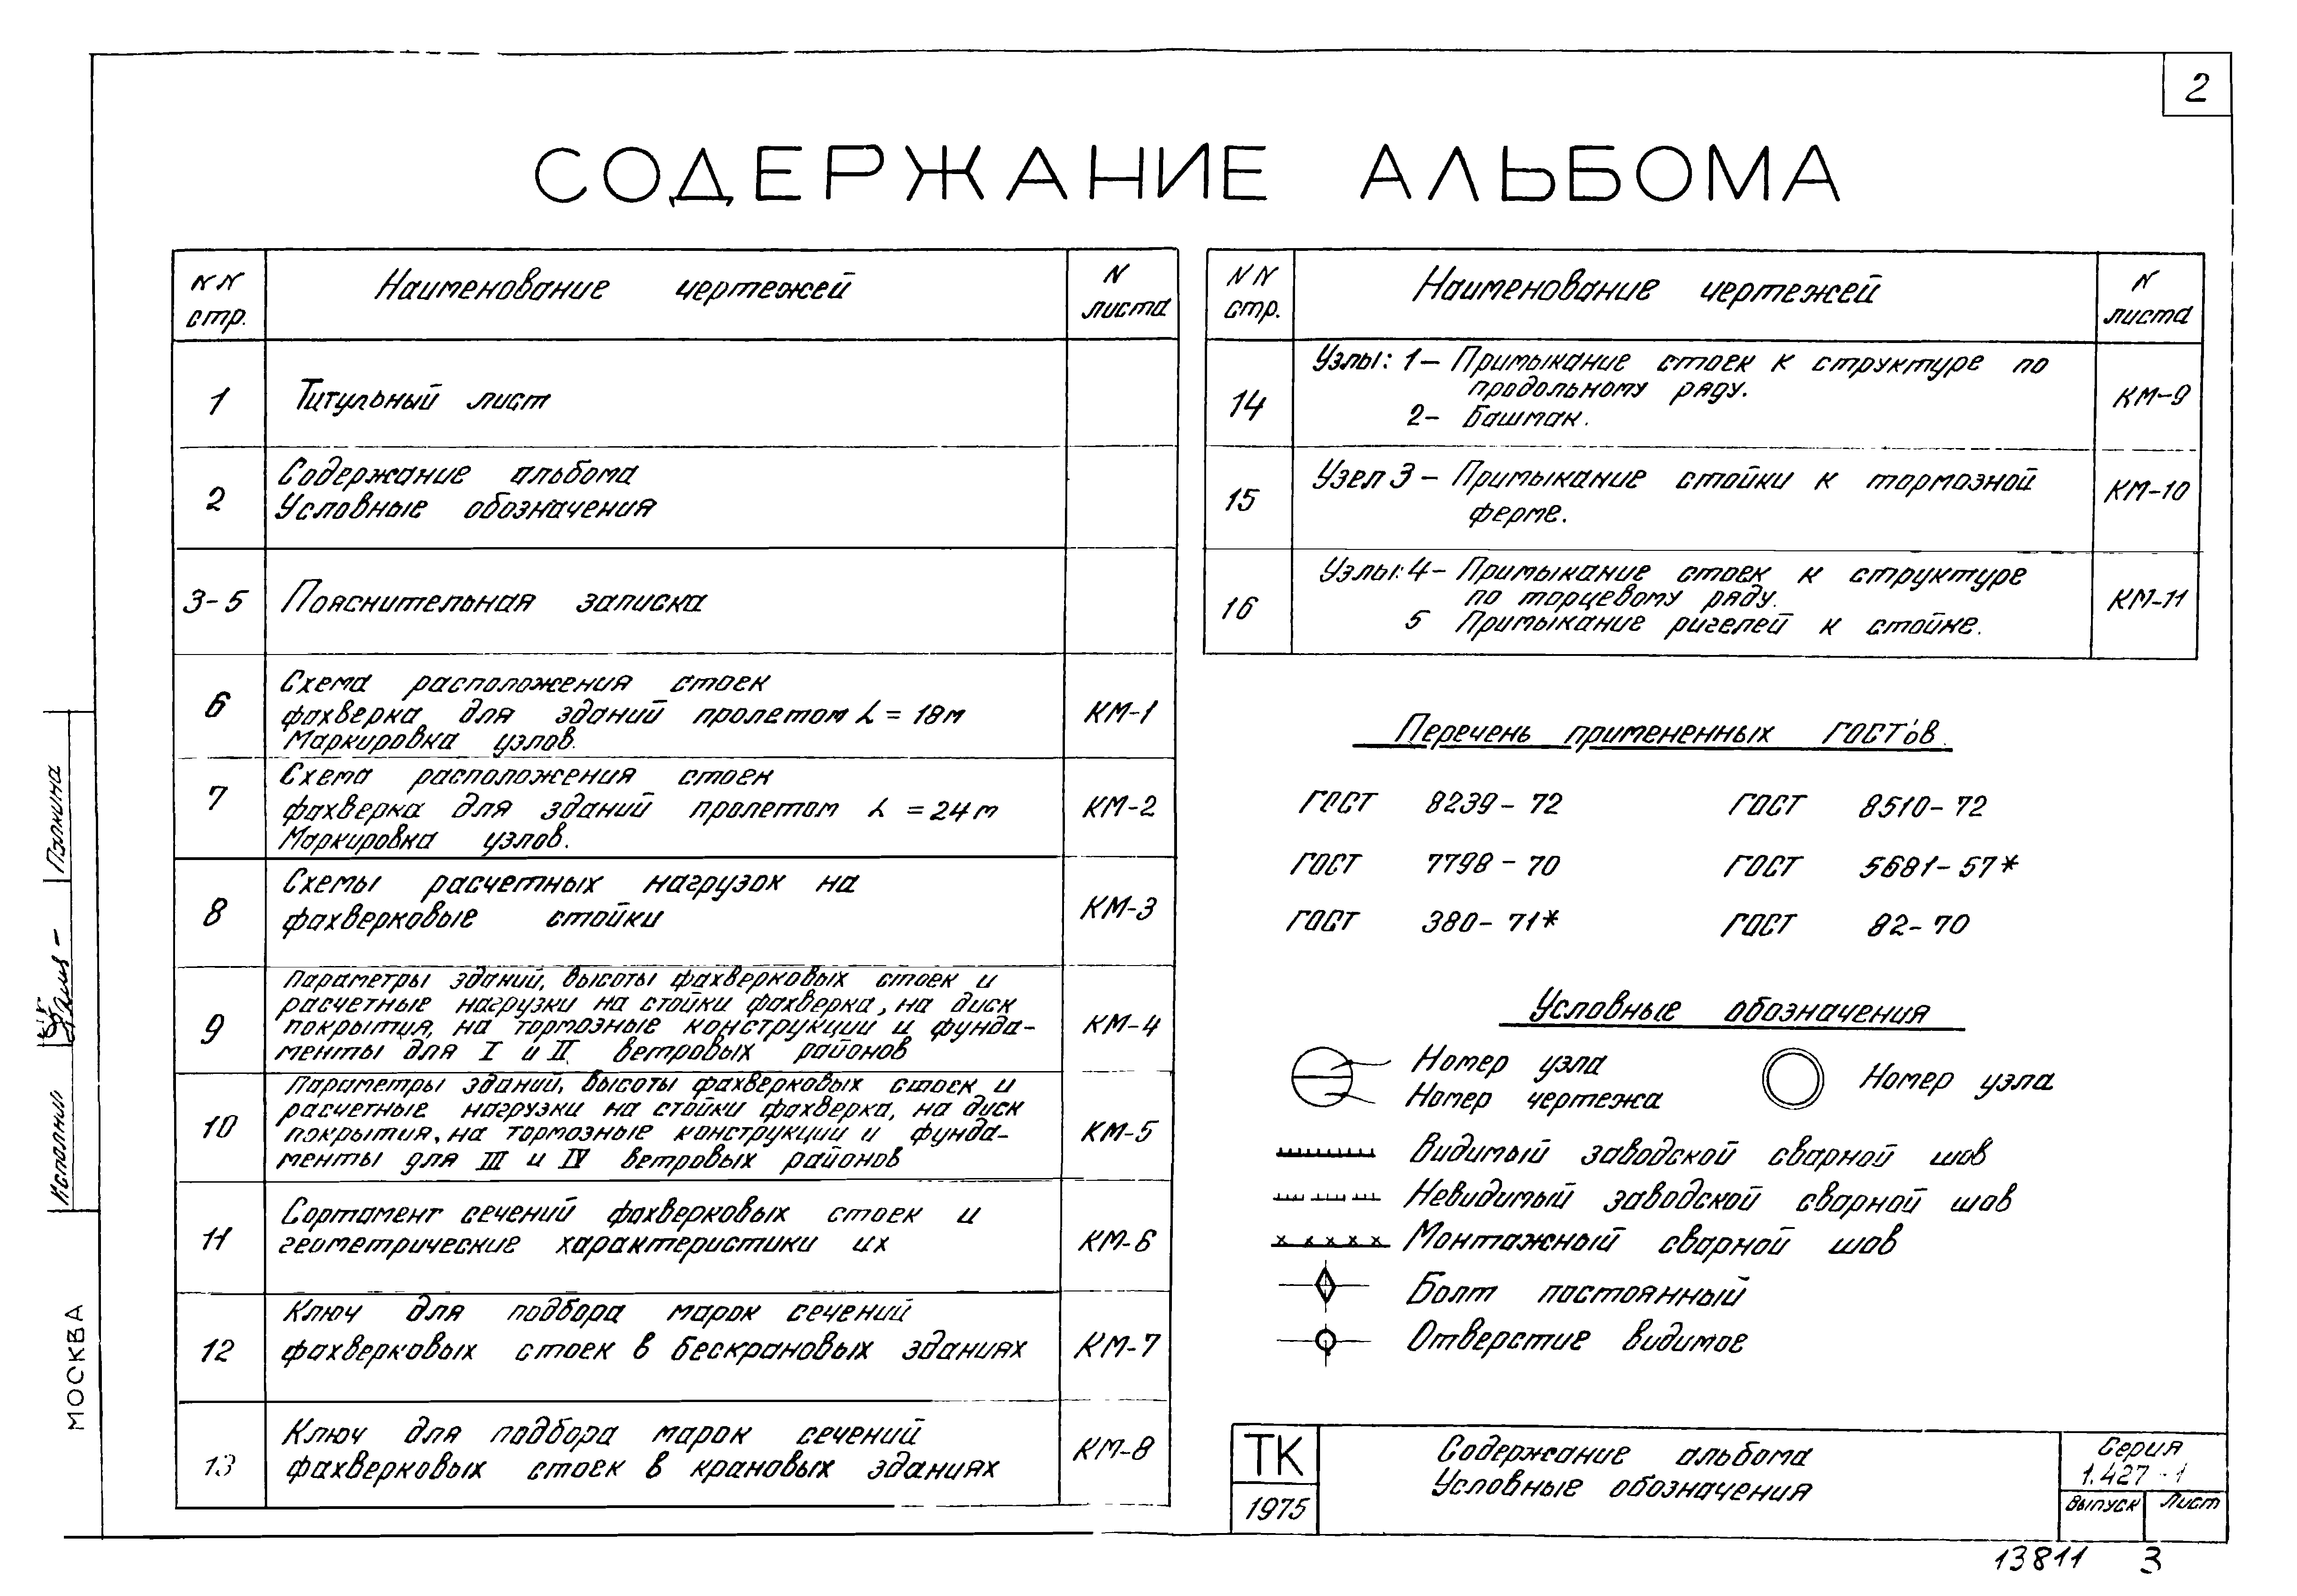 2
СОДЕРЖАНИЕ АЛЬБОМА
NN стр.
Наименование чертежей
N листа
1
Титульный лист
2
Содержание альбома
Условные обозначения
3-5
Пояснительная записка
6
Схема расположения стоек
фахверка для зданий пролетом L = 18м
Маркировка узлов.
КМ-1
7
Схема расположения стоек
фахверка для зданий пролетом L = 24м
Маркировка узлов.
КМ-2
8
Схемы расчетных нагрузок на
фахверковые стойки
КМ-3
9
Параметры зданий, высоты фахверковых стоек и
расчетные нагрузки на стойки фахверка, на диск
покрытия, на тормозные конструкции и фунда-
менты для I и II ветровых районов
КМ-4
10
Параметры зданий, высоты фахверковых стоек и
расчетные нагрузки на стойки фахверка, на диск
покрытия, на тормозные конструкции и фунда-
менты для III и IV ветровых районов
КМ-5
11
Сортамент сечений фахверковых стоек и
геометрические характеристики их
КМ-6
12
Ключ для подбора марок сечений
фахверковых стоек в бескрановых зданиях
КМ-7
13
Ключ для подбора марок сечений
фахверковых стоек в крановых зданиях
КМ-8
NN стр.
Наименование чертежей
N листа
14
Узлы: 1- Примыкание стоек к структуре по
продольному ряду.
2- Башмак.
КМ-9
15
Узел 3 - Примыкание стойки к тормозной
ферме.
КМ-10
16
Узлы: 4- Примыкание стоек к структуре
по торцевому ряду.
5 Примыкание ригелей к стойке.
КМ-11
Перечень примененных ГОСТ'ов.
ГОСТ 8239-72 ГОСТ 8510-72
ГОСТ 7798-70 ГОСТ 5681-57*
ГОСТ 380-71* ГОСТ 82-70
Условные обозначения
Номер узла
Номер чертежа
Номер узла
Видимый заводской сварной шов
Невидимый заводской сварной шов
Монтажный сварной шов
Болт постоянный
Отверстие видимое
ТК
1975
Содержание альбома
Условные обозначения
Серия
1.427-1
Выпуск Лист
13811 3
Исполнил
МОСКВА